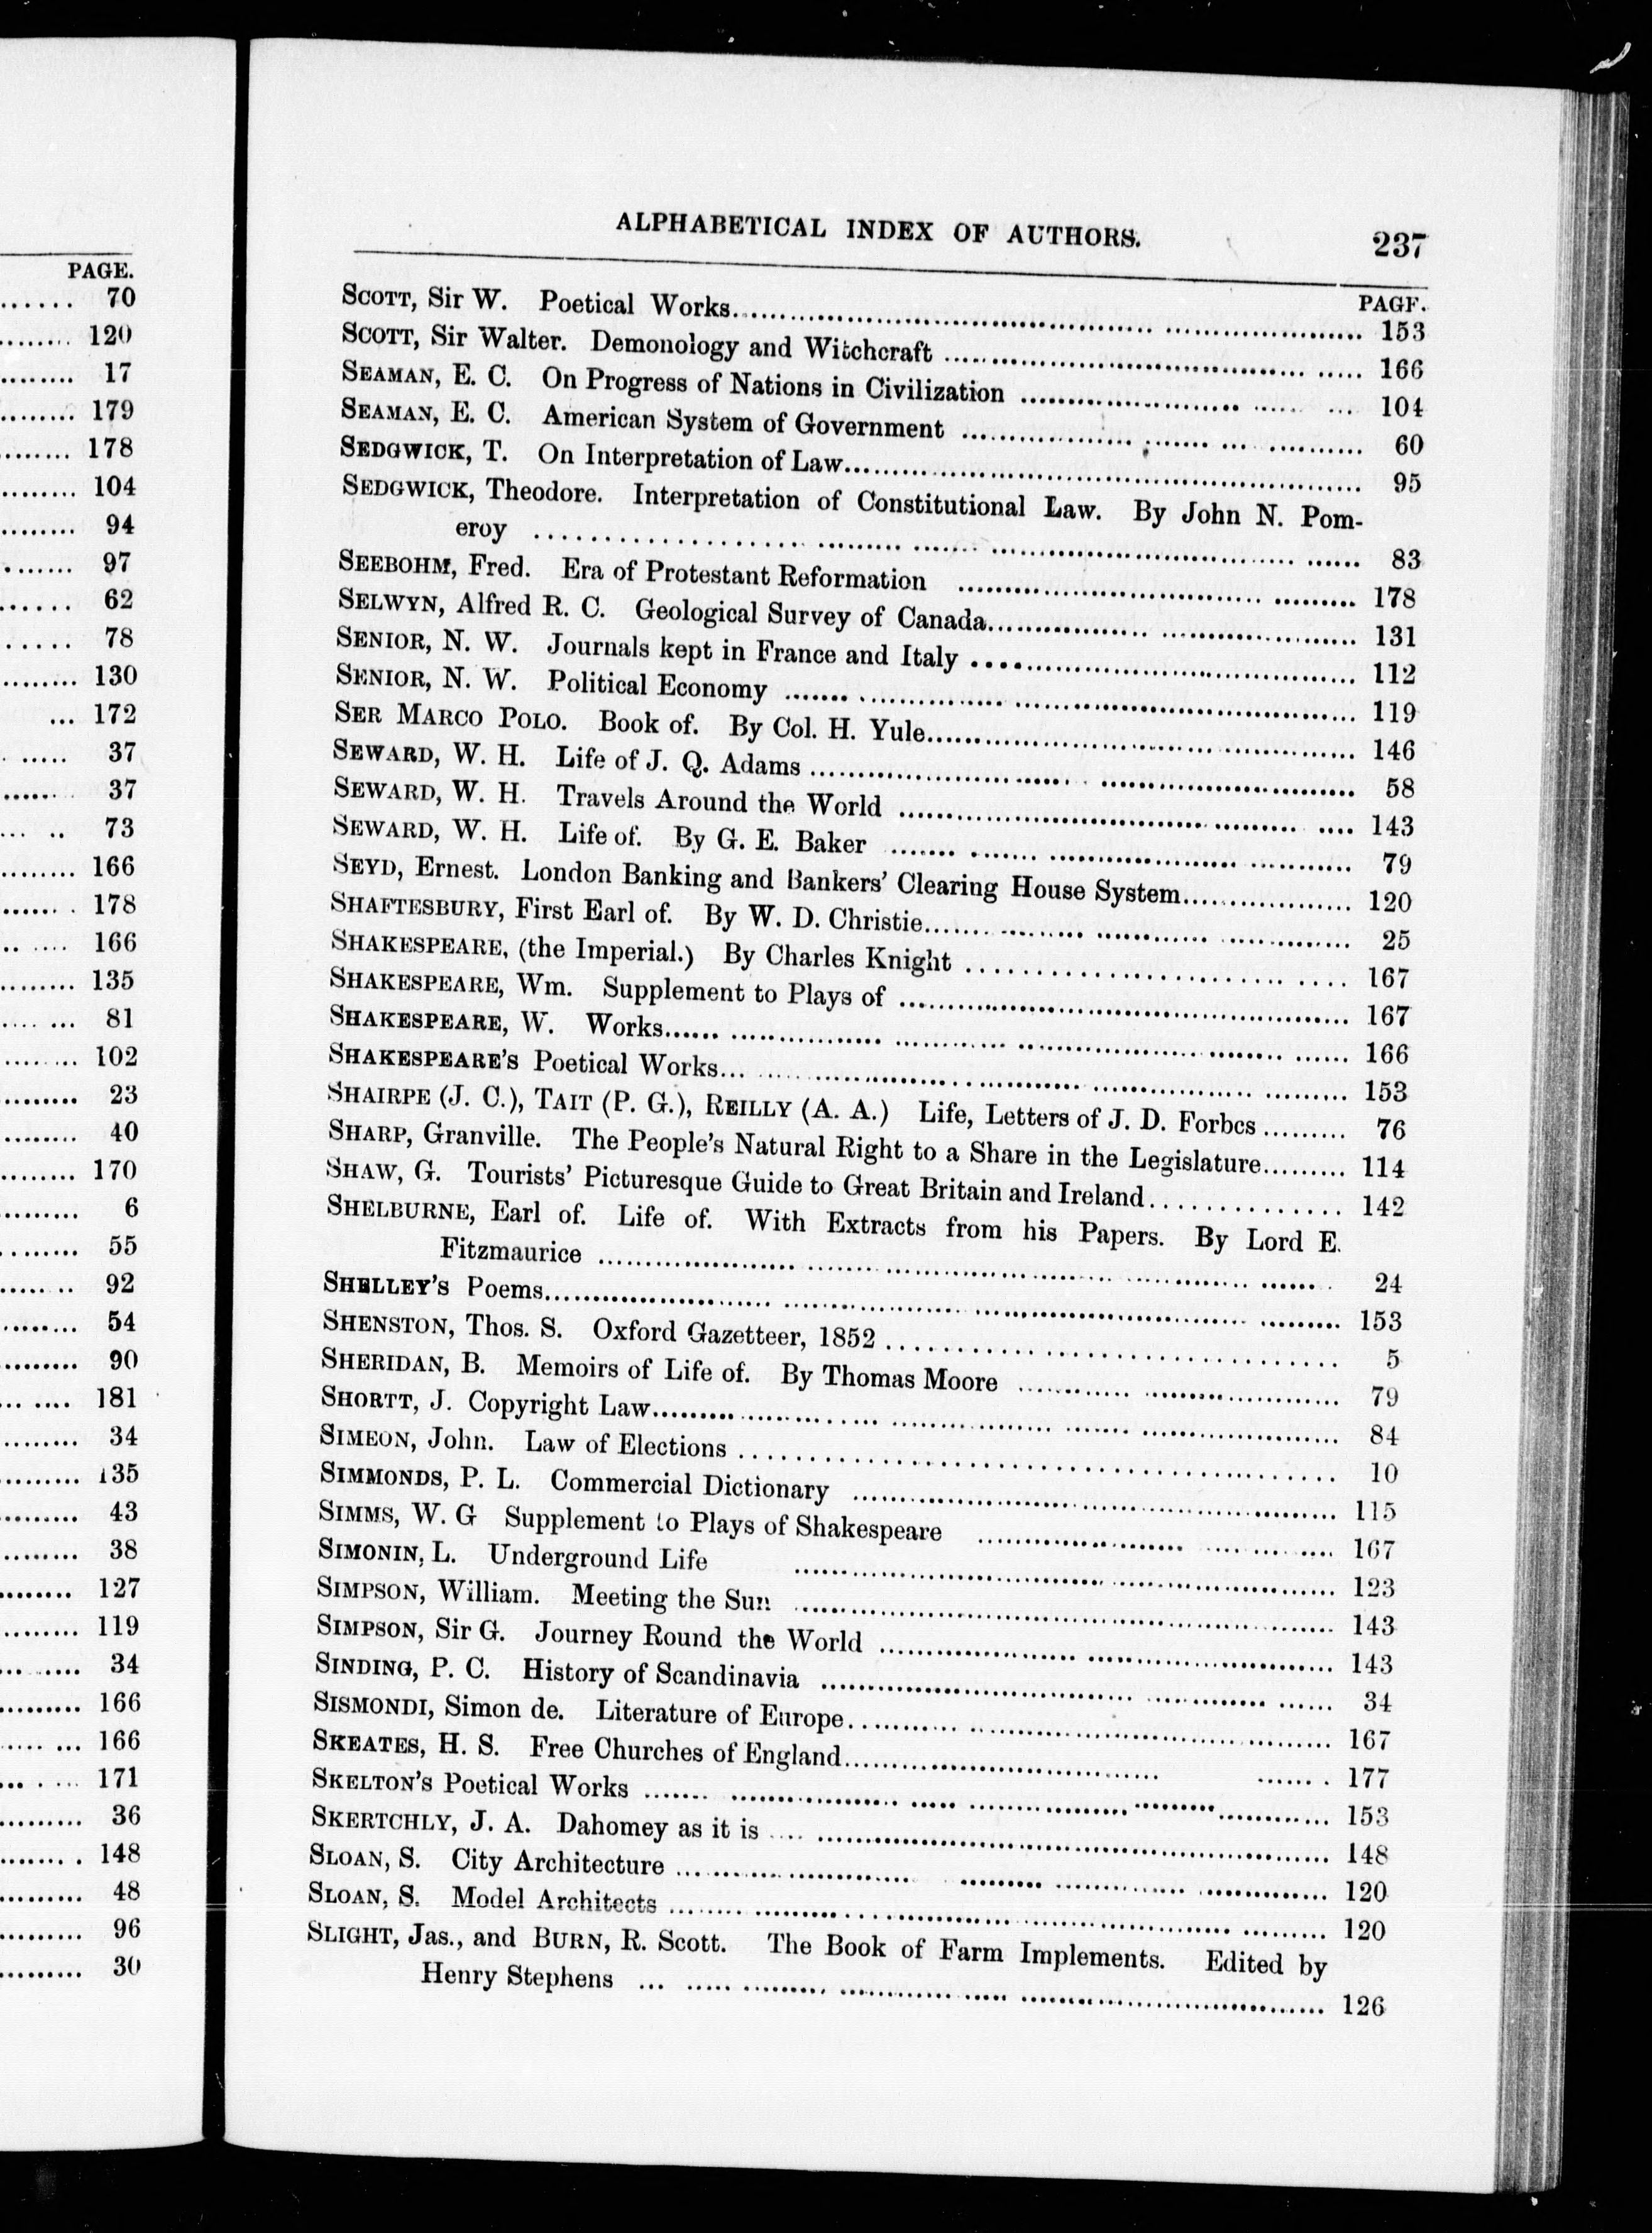 PAGE.
70
120
17
179
178
104
94
97
62
78
130
172
37
37
73
166
178
166
135
81
102
23
40
170
6
55
92
54
90
181
34
135
43
38
127
119
34
166
166
171
36
148
48
96
30
ALPHABETICAL INDEX OF AUTHORS. 237
PAGE.
SCOTT, Sir W. Poetical Works........ 153
SCOTT, Sir Walter. Demonology and Witchcraft ........ 166
SEAMAN, E. C. On Progress of Nations in Civilization ........ 104
SEAMAN, E. C. American System of Government ........ 60
SEDGWICK, T. On Interpretation of Law........ 95
SEDGWICK, Theodore. Interpretation of Constitutional Law. By John N. Pom-
eroy ........ 83
SEEBOHM, Fred. Era of Protestant Reformation ........ 178
SELWYN, Alfred R. C. Geological Survey of Canada........ 131
SENIOR, N. W. Journals kept in France and Italy ........ 112
SENIOR, N. W. Political Economy ........ 119
SER MARCO POLO. Book of. By Col. H. Yule........ 146
SEWARD, W. H. Life of J. Q. Adams ........ 58
SEWARD, W. H. Travels Around the World ........ 143
SEWARD, W. H. Life of. By G. E. Baker ........ 79
SEYD, Ernest. London Banking and Bankers' Clearing House System........ 120
SHAFTESBURY, First Earl of. By W. D. Christie........ 25
SHAKESPEARE, (the Imperial.) By Charles Knight ........ 167
SHAKESPEARE, Wm. Supplement to Plays of ........ 167
SHAKESPEARE, W. Works........ 166
SHAKESPEARE'S Poetical Works........ 153
SHAIRPE (J. C.), TAIT (P. G.), REILLY (A. A.) Life, Letters of J. D. Forbes ........ 76
SHARP, Granville. The People's Natural Right to a Share in the Legislature........ 114
SHAW, G. Tourists' Picturesque Guide to Great Britain and Ireland........ 142
SHELBURNE, Earl of. Life of. With Extracts from his Papers. By Lord E.
Fitzmaurice ........ 24
SHELLEY'S Poems........ 153
SHENSTON, Thos. S. Oxford Gazetteer, 1852 ........ 5
SHERIDAN, B. Memoirs of Life of. By Thomas Moore ........ 79
SHORTT, J. Copyright Law........ 84
SIMEON, John. Law of Elections ........ 10
SIMMONDS, P. L. Commercial Dictionary ........ 115
SIMMS, W. G Supplement to Plays of Shakespeare ........ 167
SIMONIN, L. Underground Life ........ 123
SIMPSON, William. Meeting the Sun ........ 143
SIMPSON, Sir G. Journey Round the World ........ 143
SINDING, P. C. History of Scandinavia ........ 34
SISMONDI, Simon de. Literature of Europe........ 167
SKEATES, H. S. Free Churches of England........ 177
SKELTON'S Poetical Works ........ 153
SKERTCHLY, J. A. Dahomey as it is ........ 148
SLOAN, S. City Architecture ........ 120
SLOAN, S. Model Architects ........ 120
SLIGHT, Jas., and BURN, R. Scott. The Book of Farm Implements. Edited by
Henry Stephens ........ 126